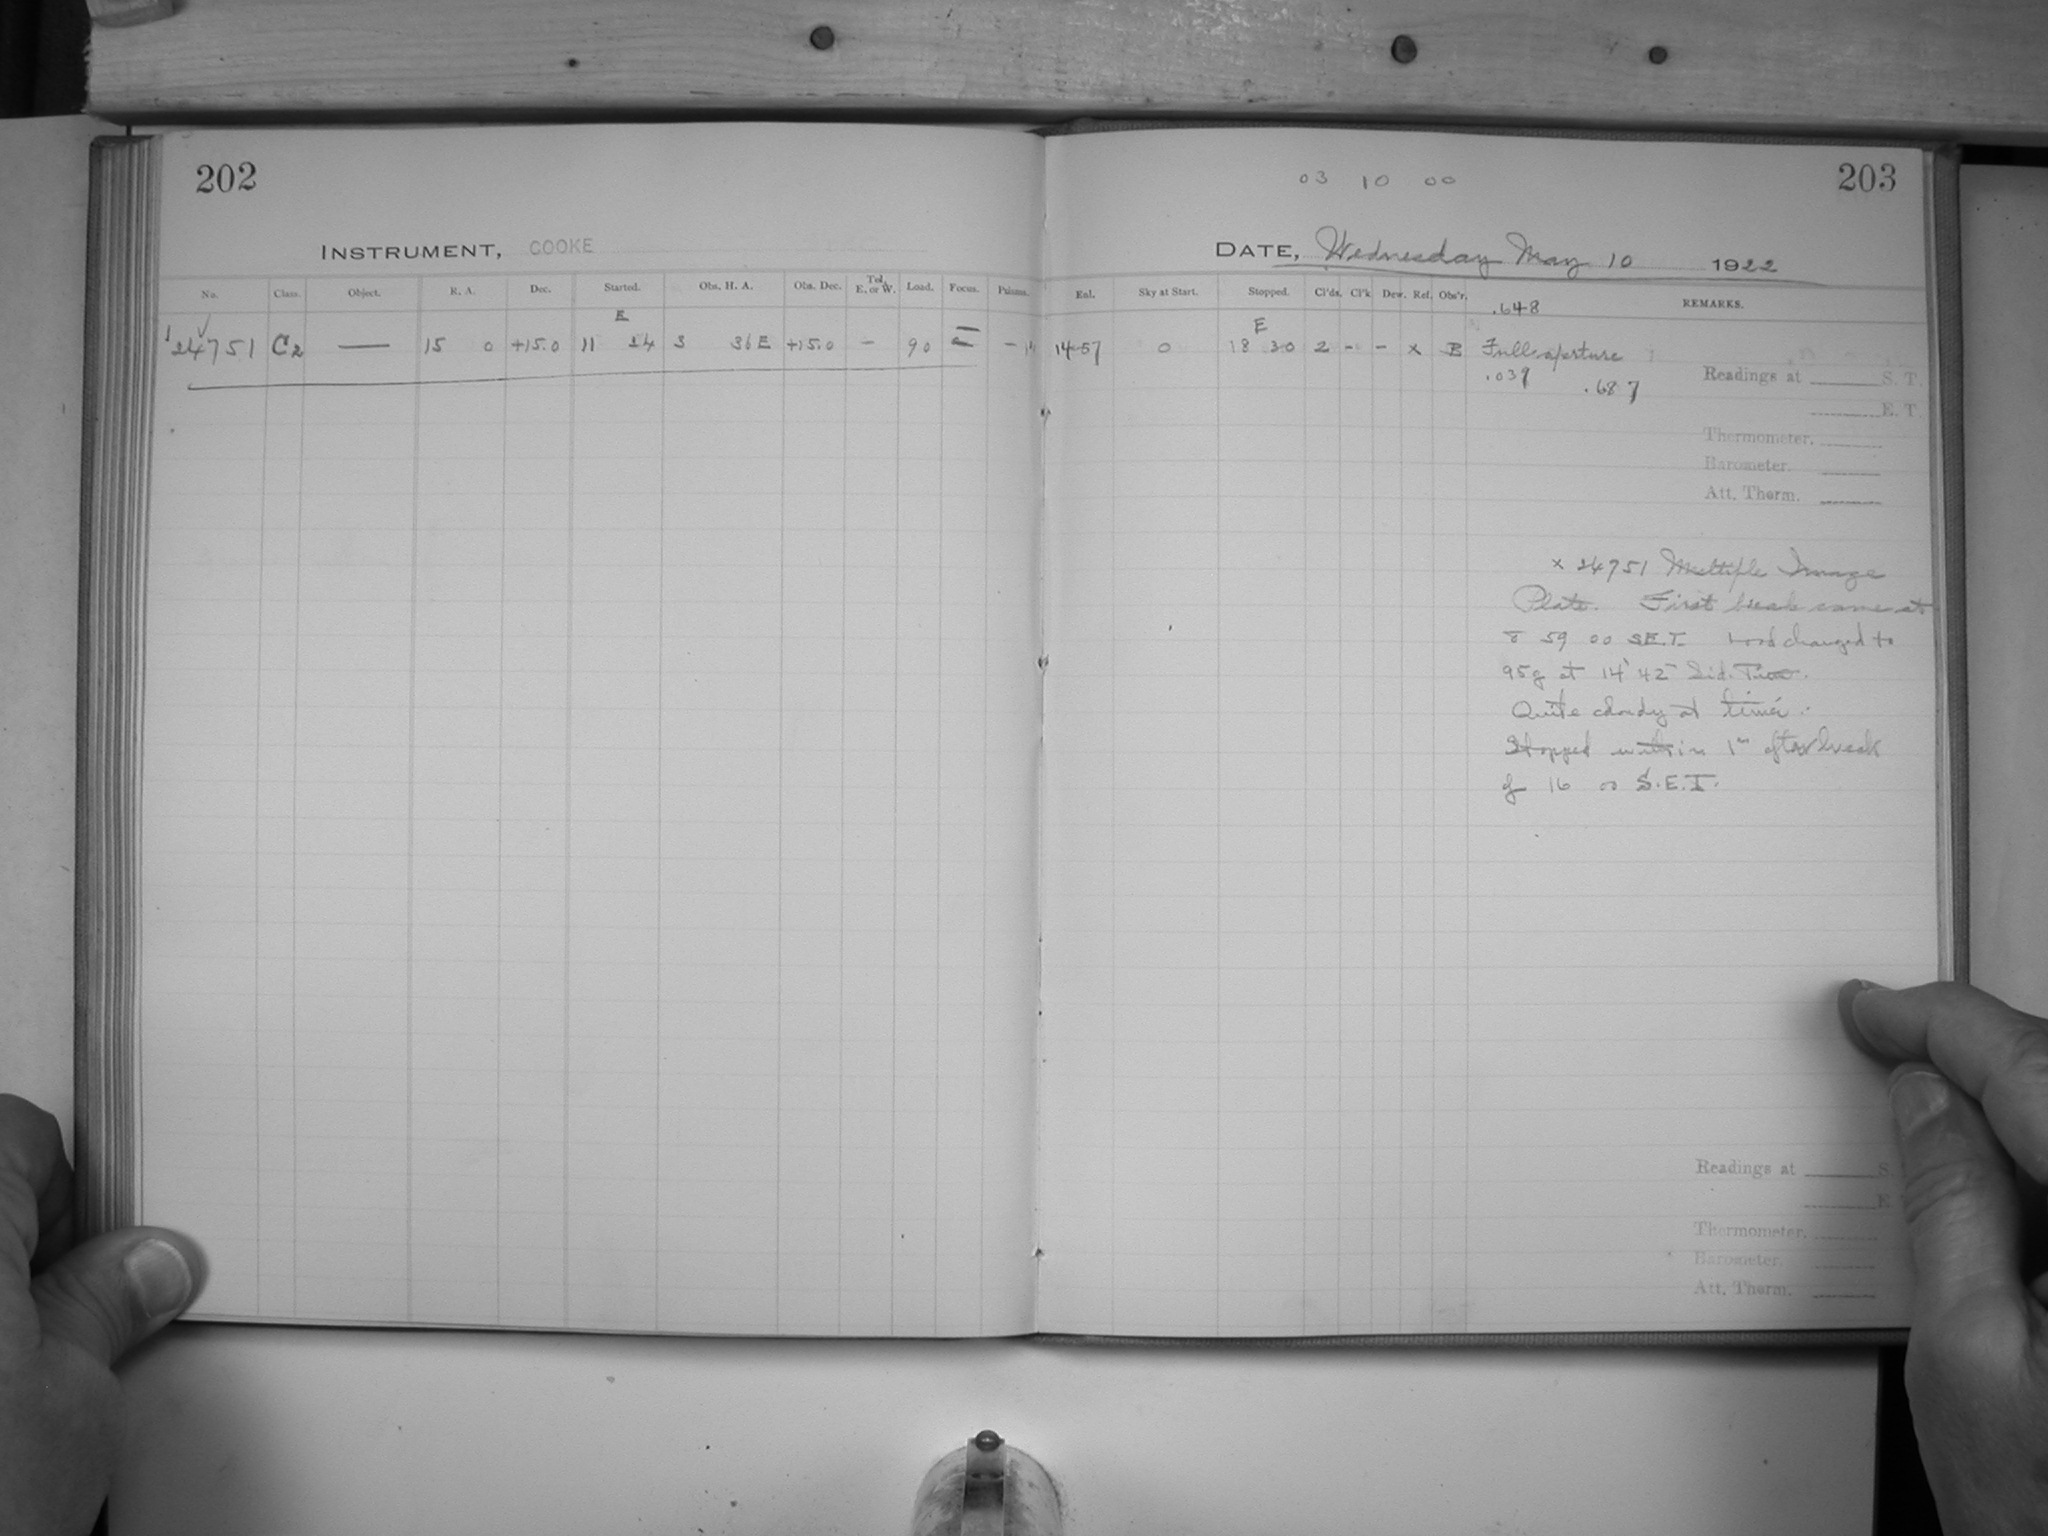 202
INSTRUMENT, COOKE
No. Class. Object. R. A. Dec. Started. Obs. H. A. Obs. Dec. Tel. E. or W. Load. Focus. Prisms.
E
24751 C2 — 15 0 +15.0 11 24 3 36E +15.0 — 90 —
203
03 10 00
DATE, Wednesday May 10 1922
Enl. Sky at Start. Stopped. Cl'ds. Cl'k Dew. Ref. Obs'r. REMARKS.
.648
E
14-57 0 18 30 2 - - x B Full aperture
.039 .687
Readings at S. T.
E. T.
Thermometer.
Barometer.
Att. Therm.
x 24751 Multiple Image
Plate. First break came at
8 59 00 S.E.T. Load changed to
95g at 14 42 Sid. Time.
Quite cloudy at times.
Stopped within 1m after break
of 16 00 S.E.T.
Readings at S
E
Thermometer.
Barometer.
Att. Therm.